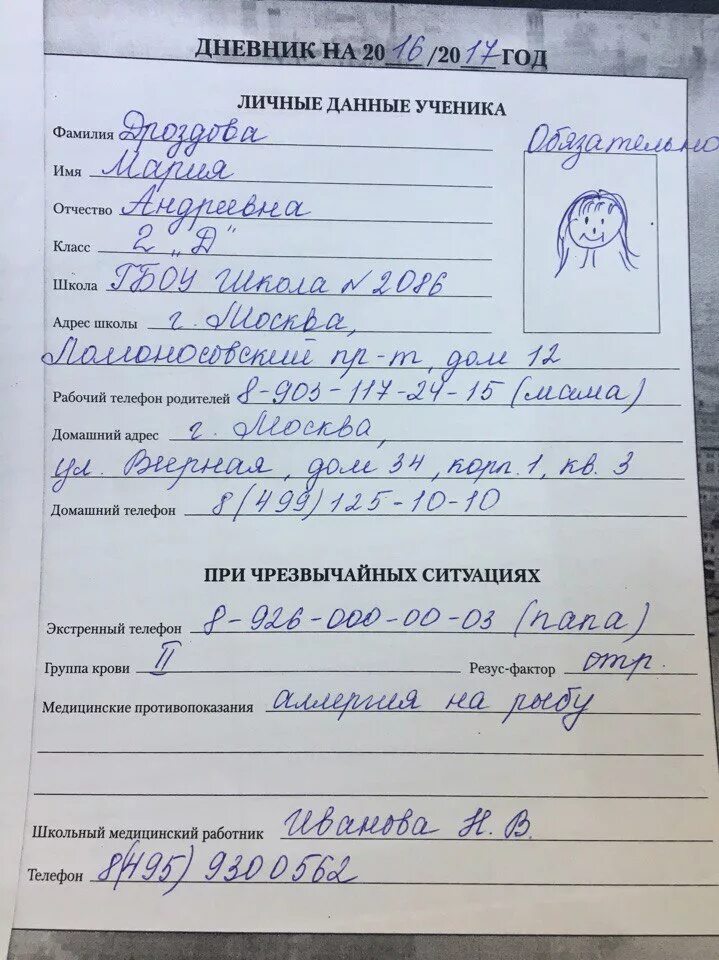 ДНЕВНИК НА 2016/2017 ГОД
ЛИЧНЫЕ ДАННЫЕ УЧЕНИКА
Фамилия Дроздова
Обязательно
Имя Мария
Отчество Андреевна
Класс 2 „Д"
Школа ГБОУ Школа №2086
Адрес школы г. Москва,
Ломоносовский пр-т, дом 12
Рабочий телефон родителей 8-903-117-24-15 (мама)
Домашний адрес г. Москва,
ул. Верная, дом 34, корп. 1, кв. 3
Домашний телефон 8(499)125-10-10
ПРИ ЧРЕЗВЫЧАЙНЫХ СИТУАЦИЯХ
Экстренный телефон 8-926-000-00-03 (папа)
Группа крови II Резус-фактор отр.
Медицинские противопоказания аллергия на рыбу
Школьный медицинский работник Иванова Н. В.
Телефон 8(495) 9300562